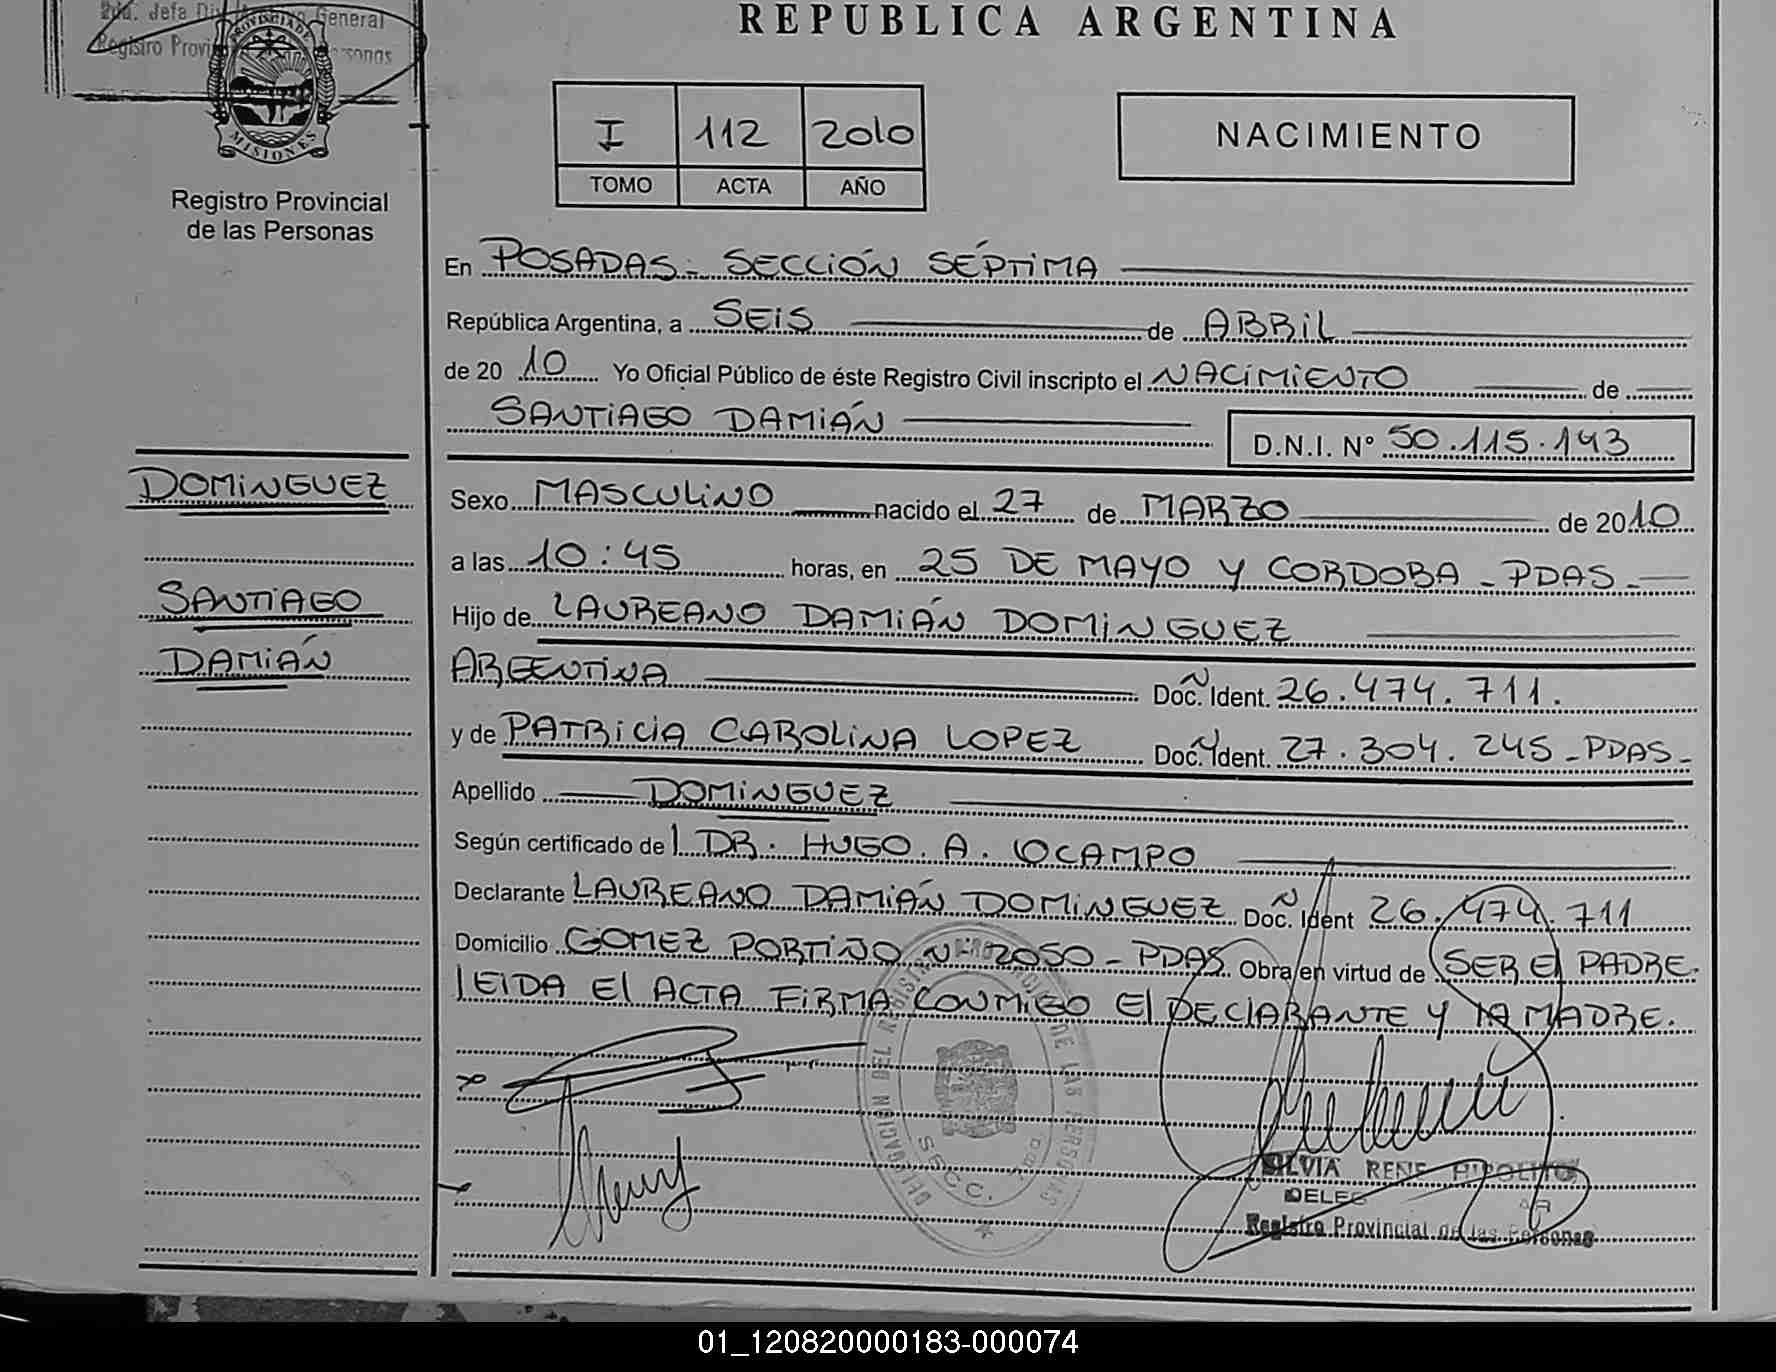 REPUBLICA ARGENTINA
2da. Jefa General
Registro Provi Personas
PROVINCIA DE
MISIONES
Registro Provincial
de las Personas
I 112 2010
TOMO ACTA AÑO
NACIMIENTO
En POSADAS - SECCIÓN SÉPTIMA
República Argentina, a SEIS de ABRIL
de 20 10 Yo Oficial Público de éste Registro Civil inscripto el NACIMIENTO de
SANTIAGO DAMIÁN D.N.I. Nº 50.115.143
DOMINGUEZ
SANTIAGO
DAMIÁN
Sexo MASCULINO nacido el 27 de MARZO de 2010
a las 10:45 horas, en 25 DE MAYO Y CORDOBA - PDAS -
Hijo de LAUREANO DAMIÁN DOMINGUEZ
ARGENTINA Doc. Ident. 26.474.711.
y de PATRICIA CAROLINA LOPEZ Doc. Ident. 27.304.245 - PDAS -
Apellido DOMINGUEZ
Según certificado de l DR. HUGO. A. OCAMPO
Declarante LAUREANO DAMIÁN DOMINGUEZ Doc. Ident 26.474.711
Domicilio GOMEZ PORTIÑO Nº 2050 - PDAS. Obra en virtud de SER El PADRE.
LEIDA El ACTA FIRMA CONMIGO El DEClARANTE Y lA MADRE.
DELEGACION DEL REGISTRO PROVINCIAL DE LAS PERSONAS
SECC.
SILVIA RENE HIPOLITO
Registro Provincial de las Personas
01_120820000183-000074